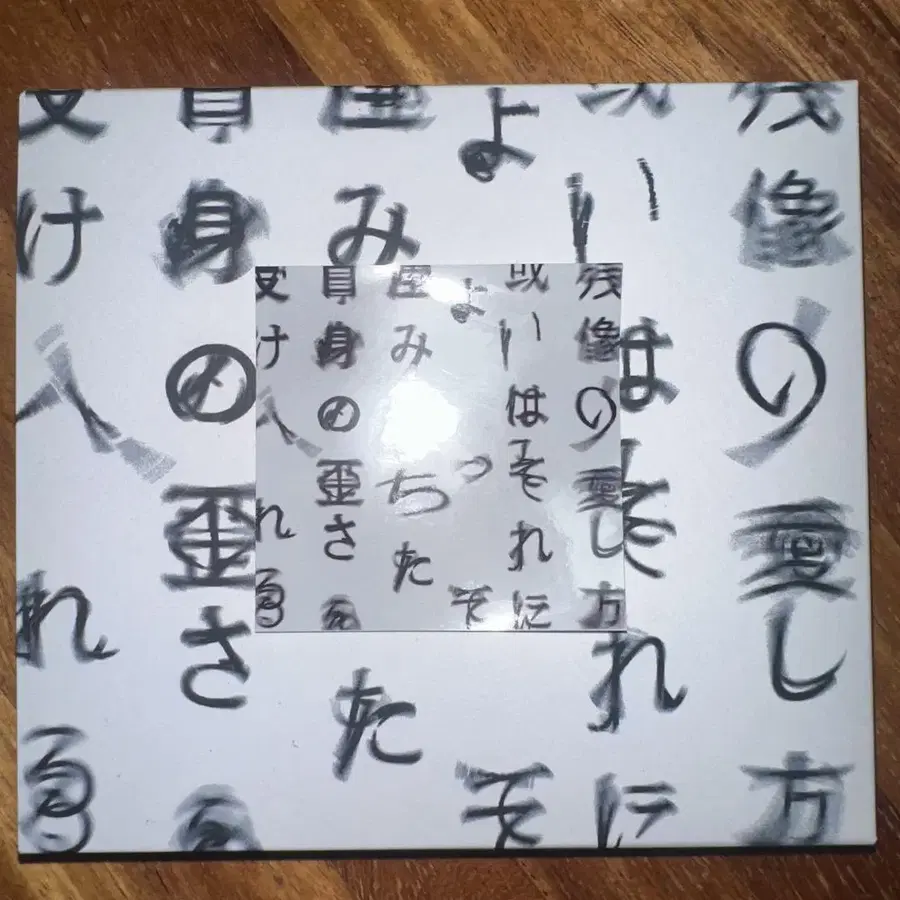 残像の愛し方
或いはそれに
よて
みた
自身の歪さを
受け入れる
残像の愛し方
或いはそれに
よって
みちた
自身の歪さを
受け入れる